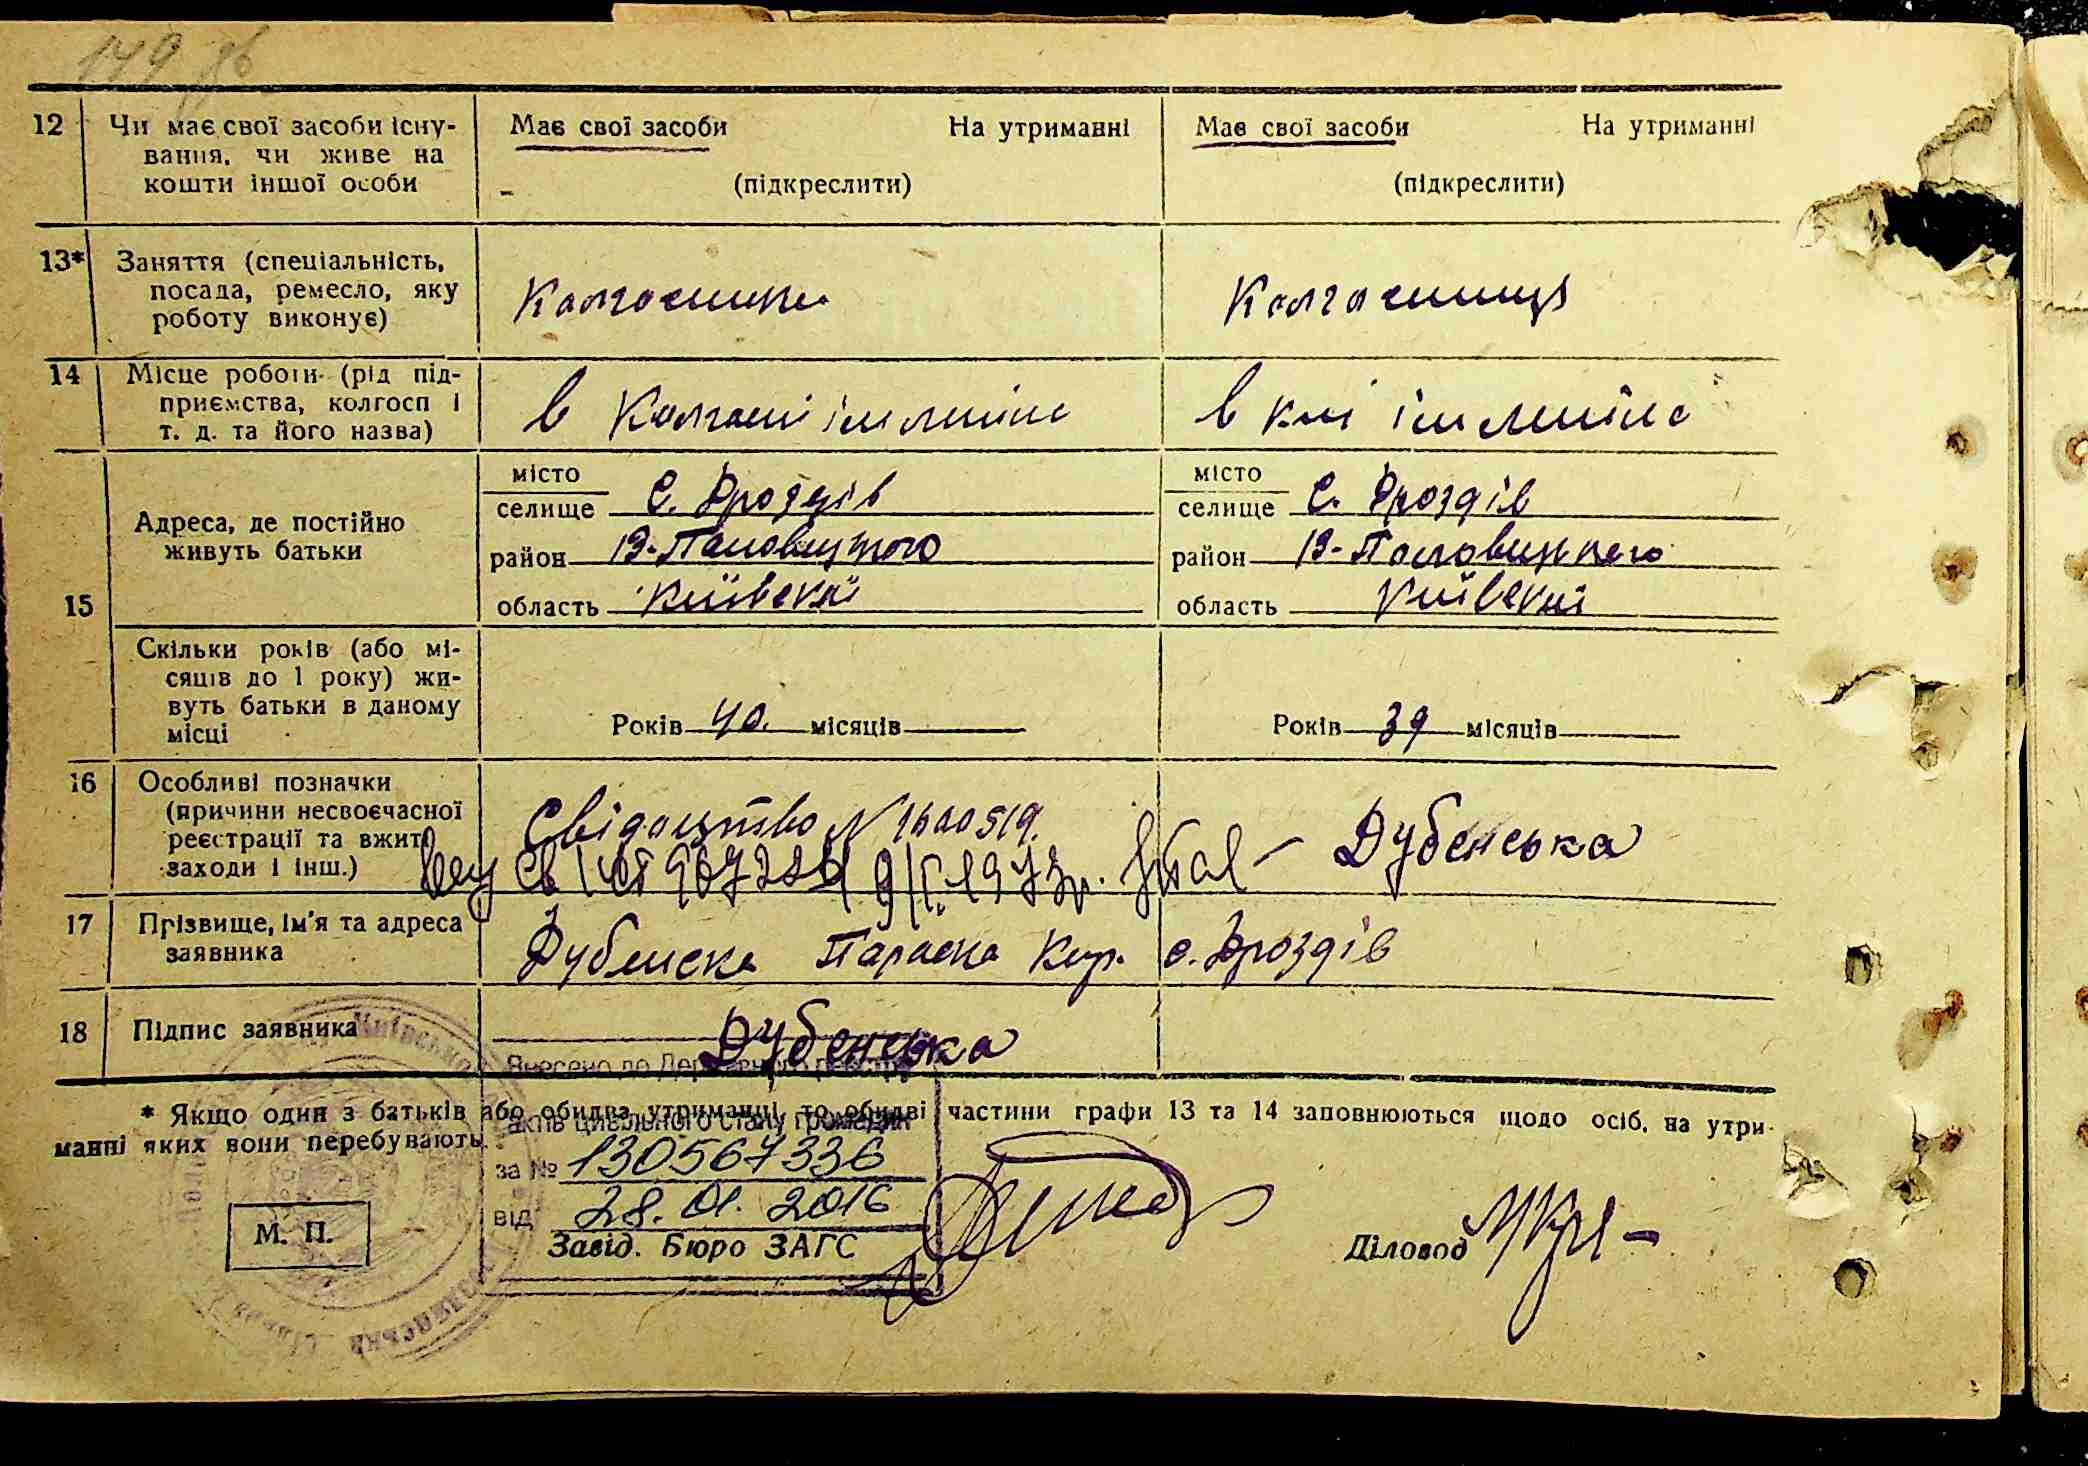 149 зв
12 Чи має свої засоби існу- Має свої засоби На утриманні Має свої засоби На утриманні
вання, чи живе на
кошти іншої особи (підкреслити) (підкреслити)
13* Заняття (спеціальність,
посада, ремесло, яку Колгоспник Колгоспниця
роботу виконує)
14 Місце роботи (рід під-
приємства, колгосп і в колгоспі ім Леніна в к-пі ім Леніна
т. д. та його назва)
15
місто місто
Адреса, де постійно селище С. Дроздів селище С. Дроздів
живуть батьки район В-Половецького район В-Половецького
область Київської область Київської
Скільки років (або мі-
сяців до 1 року) жи-
вуть батьки в даному Років 40. місяців Років 39 місяців
місці
16 Особливі позначки
(причини несвоєчасної Свідоцтво N 1600519.
реєстрації та вжиті Дубенська
заходи і інш.) 1973р.
17 Прізвище, ім'я та адреса Дубенска Параска Кир. с. Дроздів
заявника
18 Підпис заявника Дубенська
Внесено до Державного реєстру
* Якщо один з батьків або обидва утриманні, то обидві частини графи 13 та 14 заповнюються щодо осіб, на утри-
актів цивільного стану громадян
манні яких вони перебувають.
за № 130567336
від 28.01.2016
М. П.
Завід. Бюро ЗАГС
Діловод